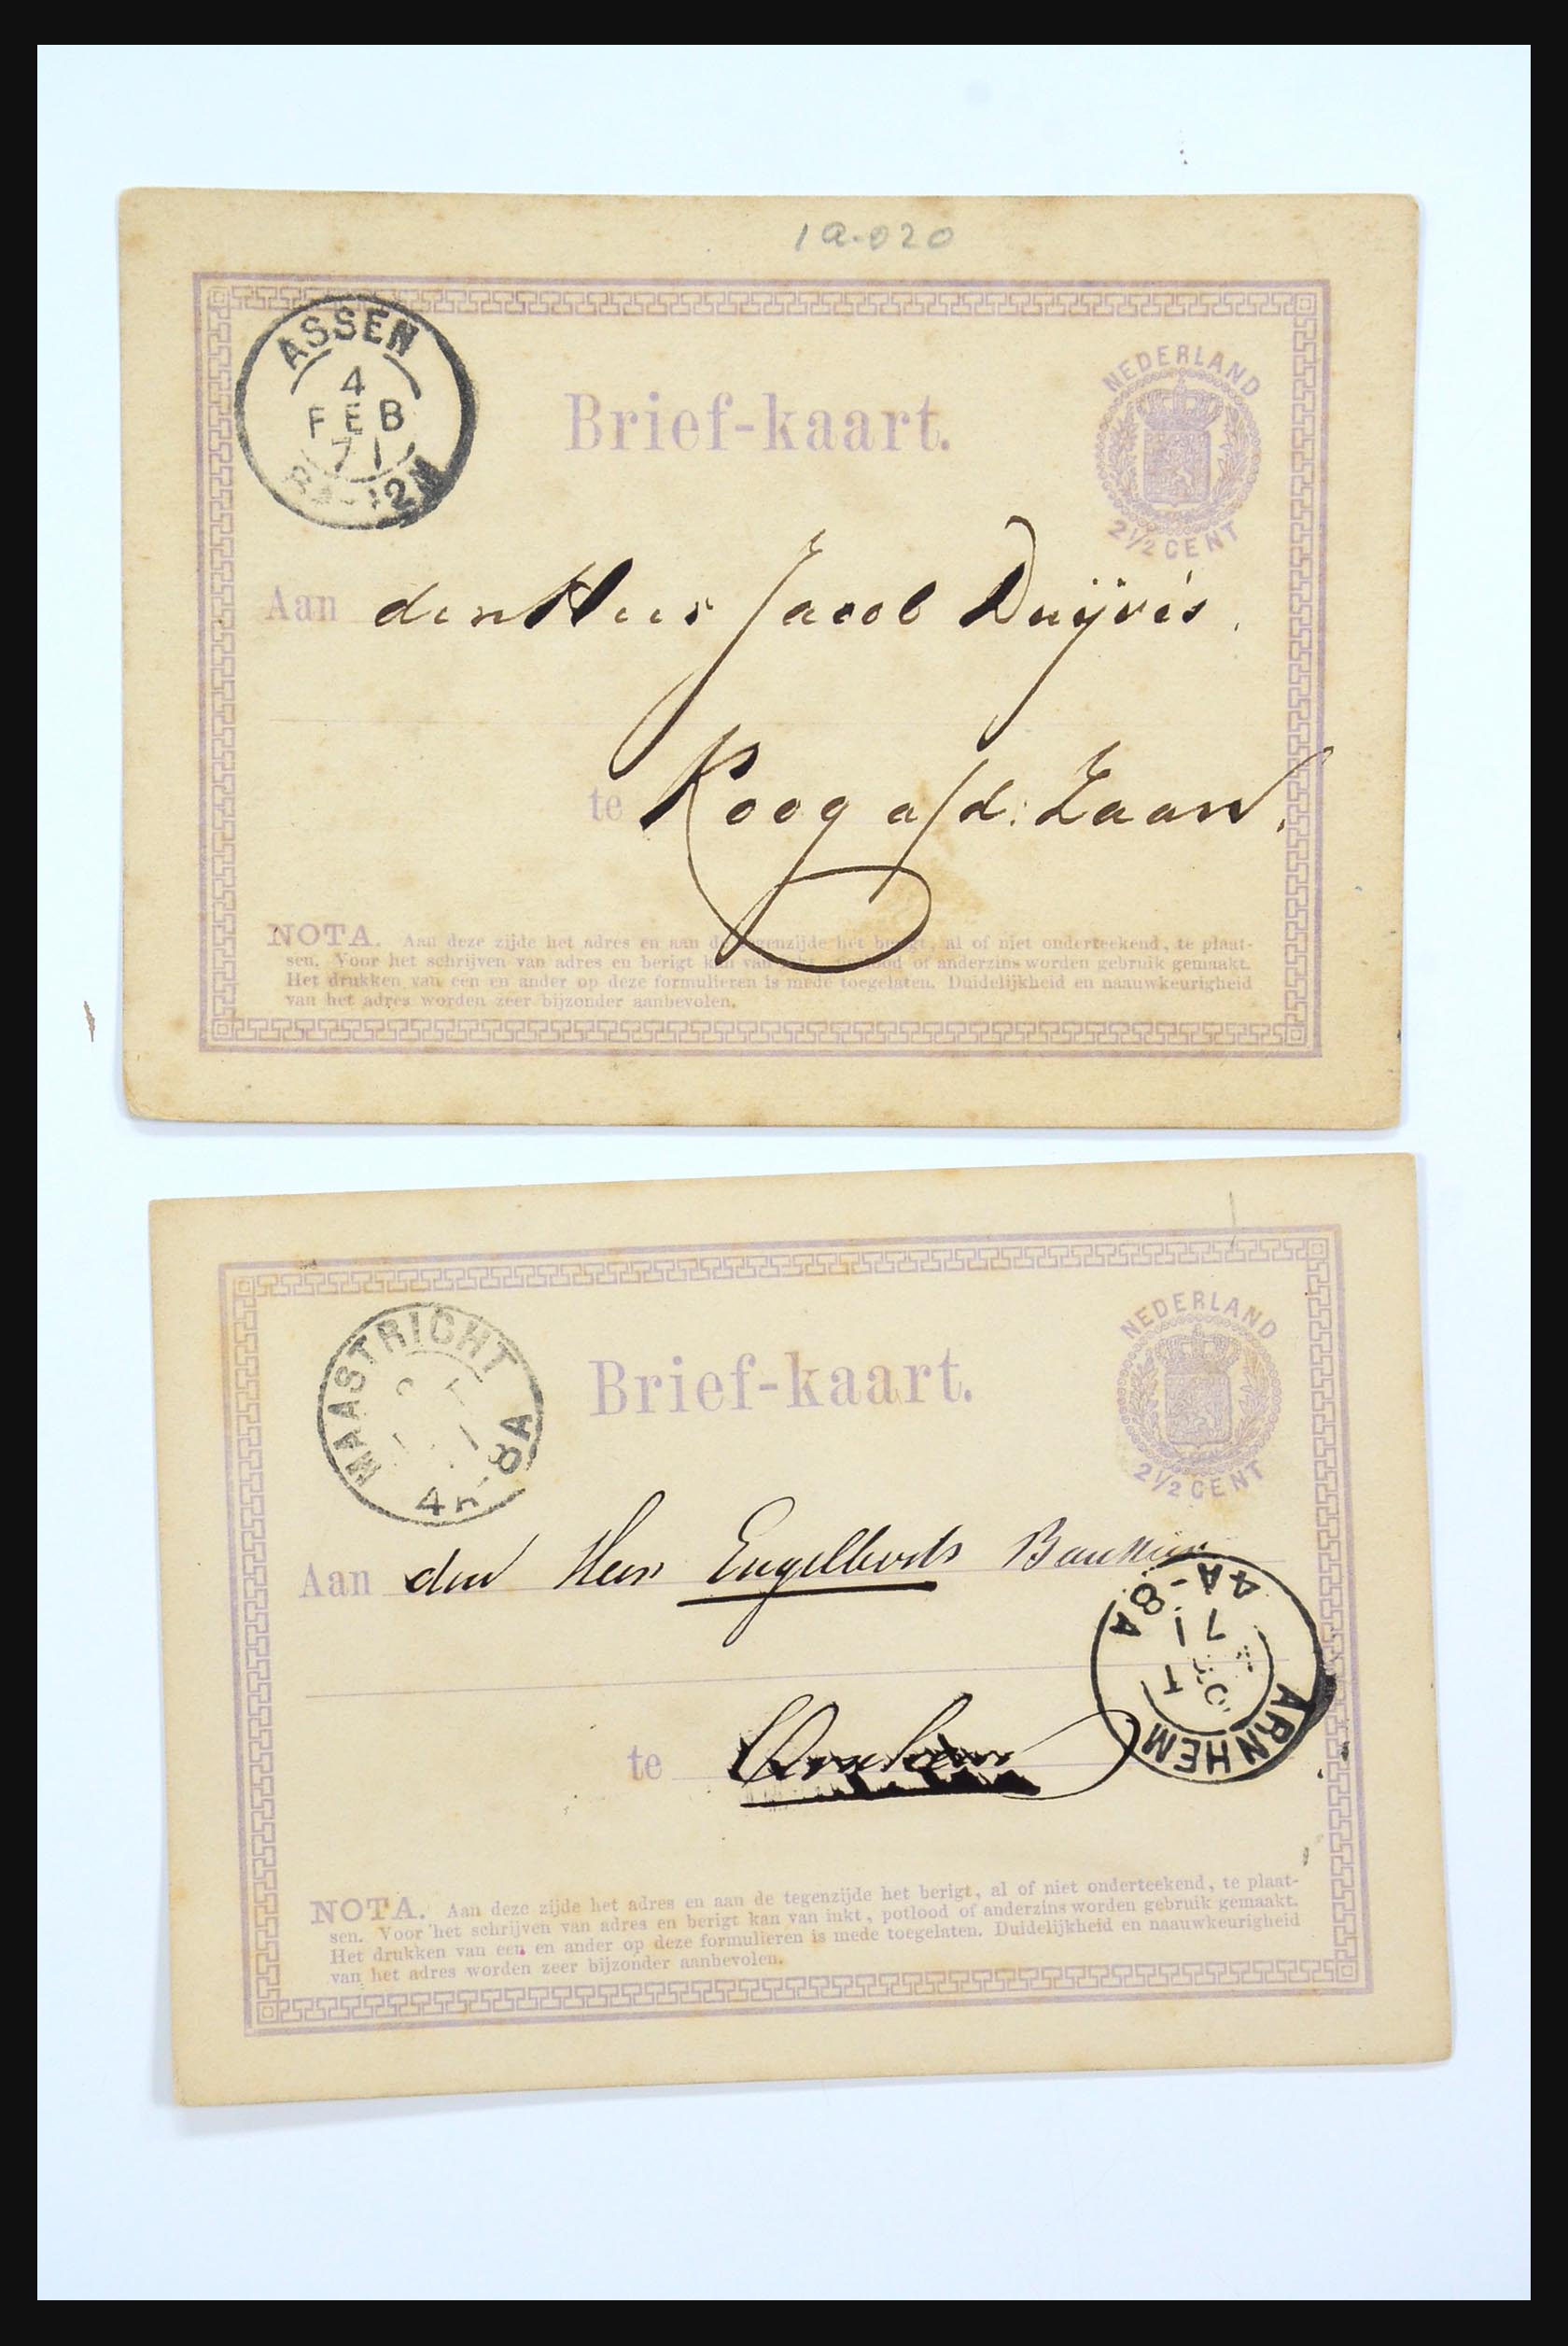 1a.020
ASSEN
4
FEB
71
NEDERLAND
2½ CENT
Brief-kaart.
Aan den Heer Jacob Duijvis.
te Koog a/d: Zaan.
NOTA. Aan deze zijde het adres en aan de tegenzijde het berigt, al of niet onderteekend, te plaat-
sen. Voor het schrijven van adres en berigt kan van inkt, potlood of anderzins worden gebruik gemaakt.
Het drukken van een en ander op deze formulieren is mede toegelaten. Duidelijkheid en naauwkeurigheid
van het adres worden zeer bijzonder aanbevolen.
MAASTRICHT
4A-8A
NEDERLAND
2½ CENT
Brief-kaart.
Aan den Heer Engelberts Bankier
te Arnhem
ARNHEM
71
4A-8A
NOTA. Aan deze zijde het adres en aan de tegenzijde het berigt, al of niet onderteekend, te plaat-
sen. Voor het schrijven van adres en berigt kan van inkt, potlood of anderzins worden gebruik gemaakt.
Het drukken van een en ander op deze formulieren is mede toegelaten. Duidelijkheid en naauwkeurigheid
van het adres worden zeer bijzonder aanbevolen.